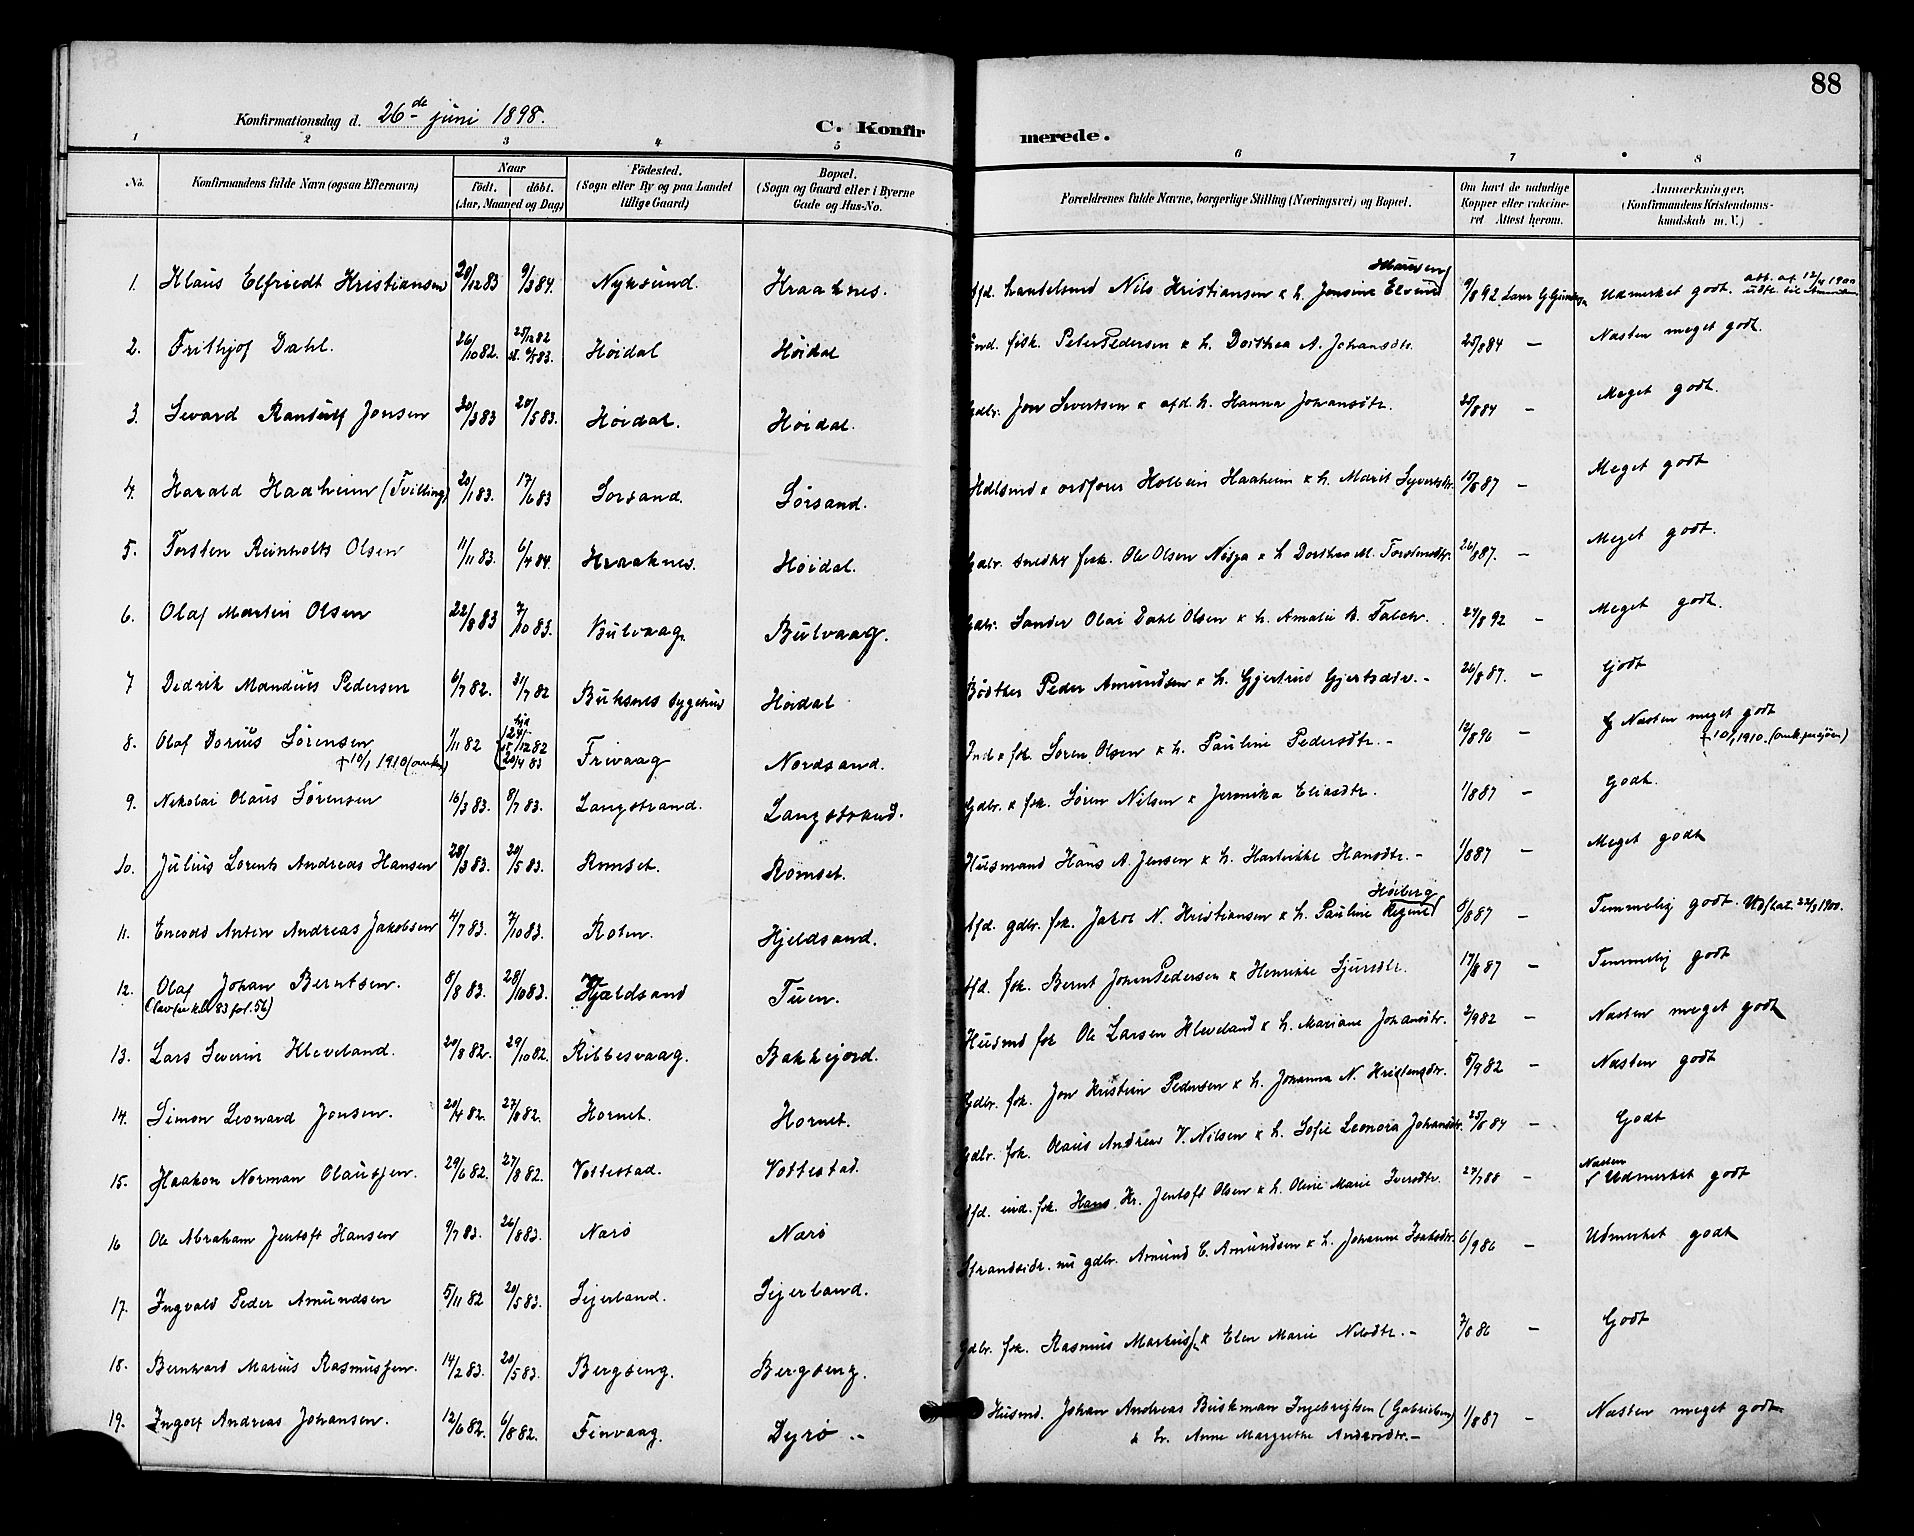 88
Konfirmationsdag d. 26de juni 1898.
C. Konfir merede.
1 2 3 4 5 6 7 8
No. Konfirmandens fulde Navn (ogsaa Efternavn) Naar födt. döbt. (Aar, Maaned og Dag) Födested. (Sogn eller By og paa Landet tillige Gaard) Bopæl. (Sogn og Gaard eller i Byerne Gade og Hus-No. Forældrenes fulde Navne, borgerlige Stilling (Næringsvei) og Bopæl. Om havt de naturlige Kopper eller vakcineret Attest herom. Anmærkninger. (Konfirmandens Kristendomskundskab m. V.)
1. Klaus Elfriedt Kristiansen 20/12 83 9/3 84. Nyksund. Kraaknes. Afd. handelsmd Nils Kristiansen & h. Jensine Elvine Hansen 9/8 92 Udmerket godt. att. af 12/4 1900
2. Frithjof Dahl. 26/10 82. 25/12 82 Høidal Høidal Ind. fisk. Peter Pedersen & h. Dorthea A. Johansdtr. 25/8 84 — Næsten meget godt.
3. Sevard Randulf Jonsen 30/3 83 20/5 83. Høidal. Høidal. Gdbr. Jon Sivertsen & afd. h. Hanna Johansdtr. 25/8 84 — Meget godt.
4. Harald Haaheim (Tvilling) 20/1 83. 17/6 83 Sorsand. Sørsand. Hdlsmd & ordfører Hollein Haaheim & h. Marit Syvertsdtr. 15/8 87 — Meget godt
5. Torsten Reinholts Olsen 11/11 83. 6/4 84. Kraaknes. Høidal. Gdbr. snedker fisk. Ole Olsen & h Dorthea M. Torstensdtr. 26/8 87. — Meget godt.
6. Olaf Martin Olsen 22/8 83 7/10 83. Bulvaag. Bulvaag. Gdbr. Sander Olai Dahl Olsen & h. Amalie B. Falch. 24/8 92 — Meget godt.
7 Dedrik Mandius Pedersen 6/7 82. 31/7 82 Buksnes sygehus Høidal Bødker Peder Amundsen & h. Gjertrud Gjertsdtr. - 26/8 87. — Godt
8. Olaf Dorius Sörensen 1/11 82 hja 24/12 82 20/4 83 Frivaag Nordsand. Ind & fsk. Sören Olsen & h. Pauline Pedersdtr. - 12/8 96 — Næsten meget godt
+ 10/1 1910 (omk.) + 10/1 1910. (omk. paa sjøen)
9. Nikolai Olaus Sörensen 16/3 83. 8/7 83. Langstrand. Langstrand. Gdbr. & fsk. Søren Nilsen & Jeronika Eliasdtr. 1/8 87 — Godt.
10. Julius Lorents Andreas Hansen 28/3 83. 20/5 83. Romset. Romset. Husmand Hans A. Jensen & h. Hartvikke Hansdtr. - 1/8 87 — Meget godt
11. Enevold Anton Andreas Jakobsen 4/7 83. 7/10 83. Roten. Hjeldsand. Afd. gdbr. fsk. Jakob N. Kristiansen & h. Pauline Regine Høiberg 8/8 87 — Temmelig godt. Udflat. 22/3 1900.
12. Olaf Johan Berntsen. 8/8 83. 28/10 83. Hjældsand Tuen. Afd. fsk. Bernt Johan Pedersen & Henrikke Sjursdtr. 17/8 87 — Temmelig godt
13. Lars Severin Kleveland. 20/8 82. 29/10 82. Ribbesvaag. Bakkejord. Husmd fsk Ole Larsen Kleveland & h. Mariane Johansdtr. 2/9 82 — Næsten meget godt
14. Simon Leonard Jonsen. 20/4 82. 27/8 82. Hornet. Hornet. Gdbr. fsk. Jon Kristian Pedersen & h. Johanna N. Kristensdtr. 5/9 82 — Næsten godt
15. Haakon Norman Olaussen. 29/6 82. 27/8 82. Vottestad. Vottestad. Gdbr. fsk. Olaus Andreas V. Nilsen & h. Sofie Leonora Johansdtr. 25/8 84 — Godt
16 Ole Abraham Jentoft Hansen 9/7 83. 26/8 83. Nærö Nærö Afd. ind. fsk. Hans Kr. Jentoft Olsen & h. Oline Marie Iversdtr. 27/7 88 — Næsten Udmerket godt
17. Ingvald Peder Amundsen 5/11 82 20/5 83. Sejerland. Sejerland. Strandsidr. nu gdbr. Amund C. Amundsen & h. Johanne Isaksdtr. 6/9 86 — Udmerket godt
18. Bernhard Marius Rasmussen. 14/2 83. 20/5 83. Bergseng. Bergseng. Gdbr. fsk. Rasmus & Elen Marie Nilsdtr. - 7/8 86 — Godt
19. Ingolf Andreas Johansen. 12/6 82. 6/8 82. Finvaag. Dyrö Husmd. Johan Andreas Buskman Ingebrigtsen (Gabrielsen) & h. Anne Margrethe Andersdtr. - 1/8 87 — Næsten meget godt